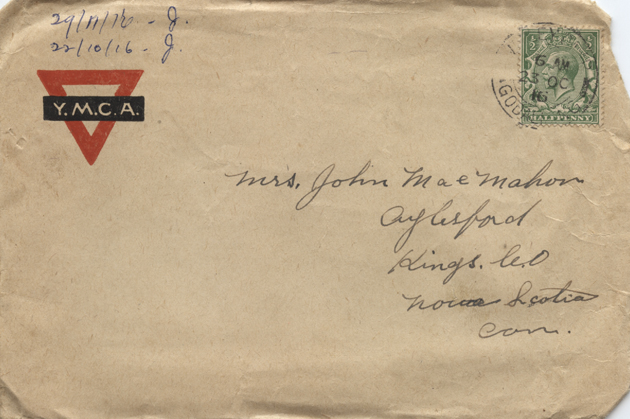 29/11/16 - J.
22/10/16 - J.
Y.M.C.A.
6 AM
23 OC
16
GOD
HALFPENNY
Mrs. John MacMahon
Aylesford
Kings. Co
Nova Scotia
Can.